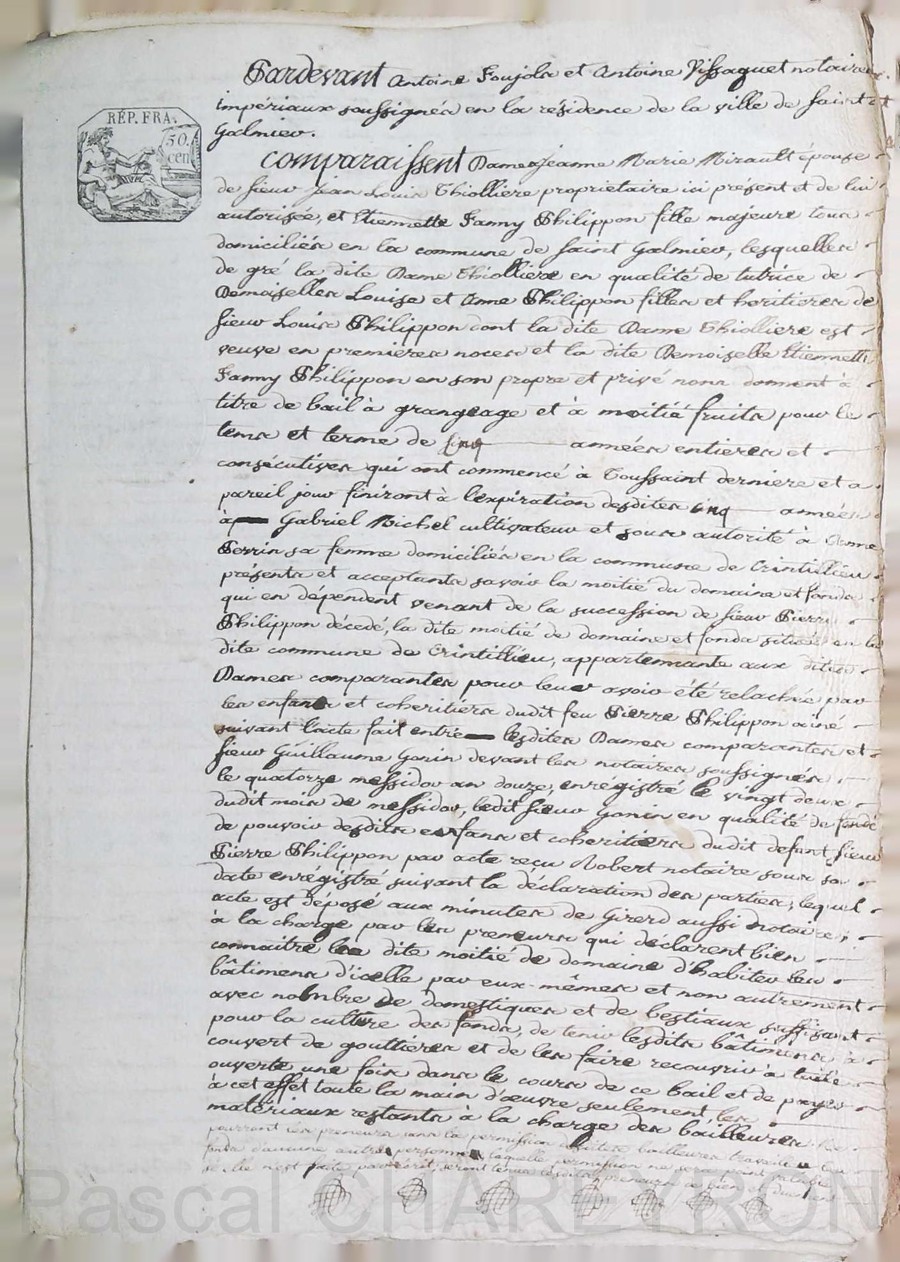 Pardevant Antoine Foujols et Antoine Vissaguet notaires
impériaux soussignés en la résidence de la ville de saint
Galmier.
RÉP. FRA.
50.
cen
comparaissent Dames Jeanne Marie Mirault épouse
de sieur Jean Louis Thiolliere propriétaire ici présent et de lui
autorisée, et Etiennette Fanny Philippon fille majeure tous
domiciliés en la commune de saint Galmier, lesquelles
de gré la dite Dame Thiolliere en qualité de tutrice de
Demoiselles Louise et Anne Philippon filles et heritieres de
sieur Louis Philippon dont la dite Dame Thiolliere est
veuve en premieres noces et la dite Demoiselle Etiennette
Fanny Philippon en son propre et privé nom donnent à
titre de bail à grangeage et à moitié fruits pour le
tems et terme de cinq années entieres et
consécutives qui ont commencé à Toussaint derniere et a
pareil jour finiront à l'expiration desdites cinq années
à Gabriel Michel cultivateur et sous autorité à Anne
Perrin sa femme domiciliés en la commune de Crintillieu
présents et acceptants savoir la moitié du domaine et fonds
qui en dépendent venant de la succession de sieur Pierre
Philippon décedé, la dite moitié de domaine et fonds située en la
dite commune de Crintillieu, appartennante aux dites
Dames comparantes pour leur avoir été relachée par
les enfants et coheritiers dudit feu Pierre Philippon ainé
suivant l'acte fait entre lesdites Dames comparantes et
sieur Guillaume Gonin devant les notaires soussignés
le quatorze messidor an douze, enrégistré le vingt deux
dudit mois de messidor, ledit sieur Gonin en qualité de fondé
de pouvoir desdits enfans et coheritiers dudit defunt sieur
Pierre Philippon par acte reçu Robert notaire sous sa
date enrégistré suivant la déclaration des parties, lequel
acte est déposé aux minutes de Girerd aussi notaire;
à la charge par les preneurs qui déclarent bien
connaitre la dite moitié de domaine d'habiter les
bâtimens d'icelle par eux-mêmes et non autrement
avec nombre de domestiques et de bestiaux suffisant
pour la culture des fonds, de tenir lesdits bâtimens à
couvert de gouttieres et de les faire recouvrir à tuile
ouverte une fois dans le cours de ce bail et de payer
à cet effet toute la main d'œuvre seulement les
matériaux restants à la charge des bailleurs
pourront les preneurs sans la permission desdites bailleurs travailler les
fonds d'aucune autre personne laquelle permission ne sera point
si elle n'est faite par écrit, seront tenus lesdits preneurs de bien et
Pascal CHAREYRON